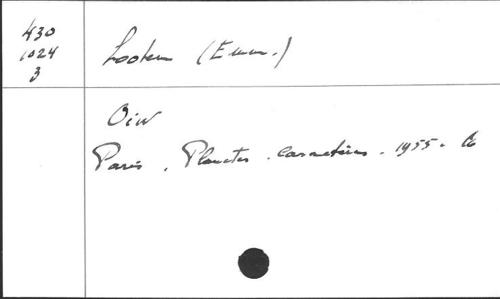 430
1024
3
Looten (Emm.)
Oiw
Paris, Planètes. Caractères. 1955. 16